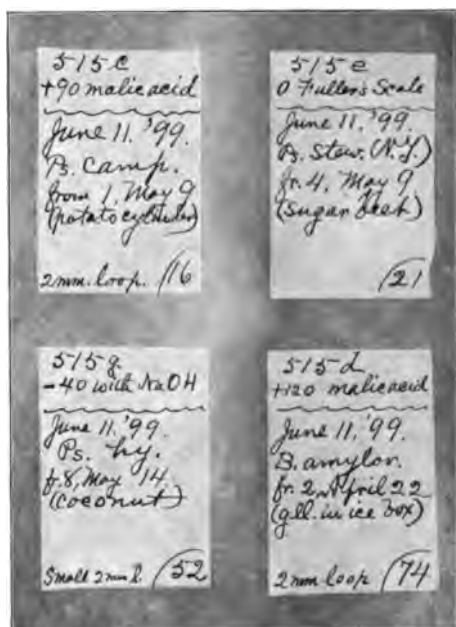 515c
+90 malic acid
June 11, '99.
Ps. camp.
from 1, May 9
(potato cylinder)
2 mm. loop. 16
515e
0 Fuller's Scale
June 11, '99.
Ps. Stew. (N.Y.)
fr. 4, May 9
(sugar beet)
21
515g
-40 with NaOH
June 11, '99.
Ps. hy.
fr. 8, May 14.
(coconut)
Small 2mm l. 52
515d
+120 malic acid
June 11, '99.
B. amylov.
fr. 2, April 22
(gel. in ice box)
2 mm loop 74